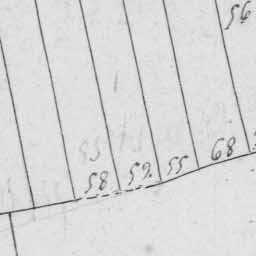 56
58 59. 55 68